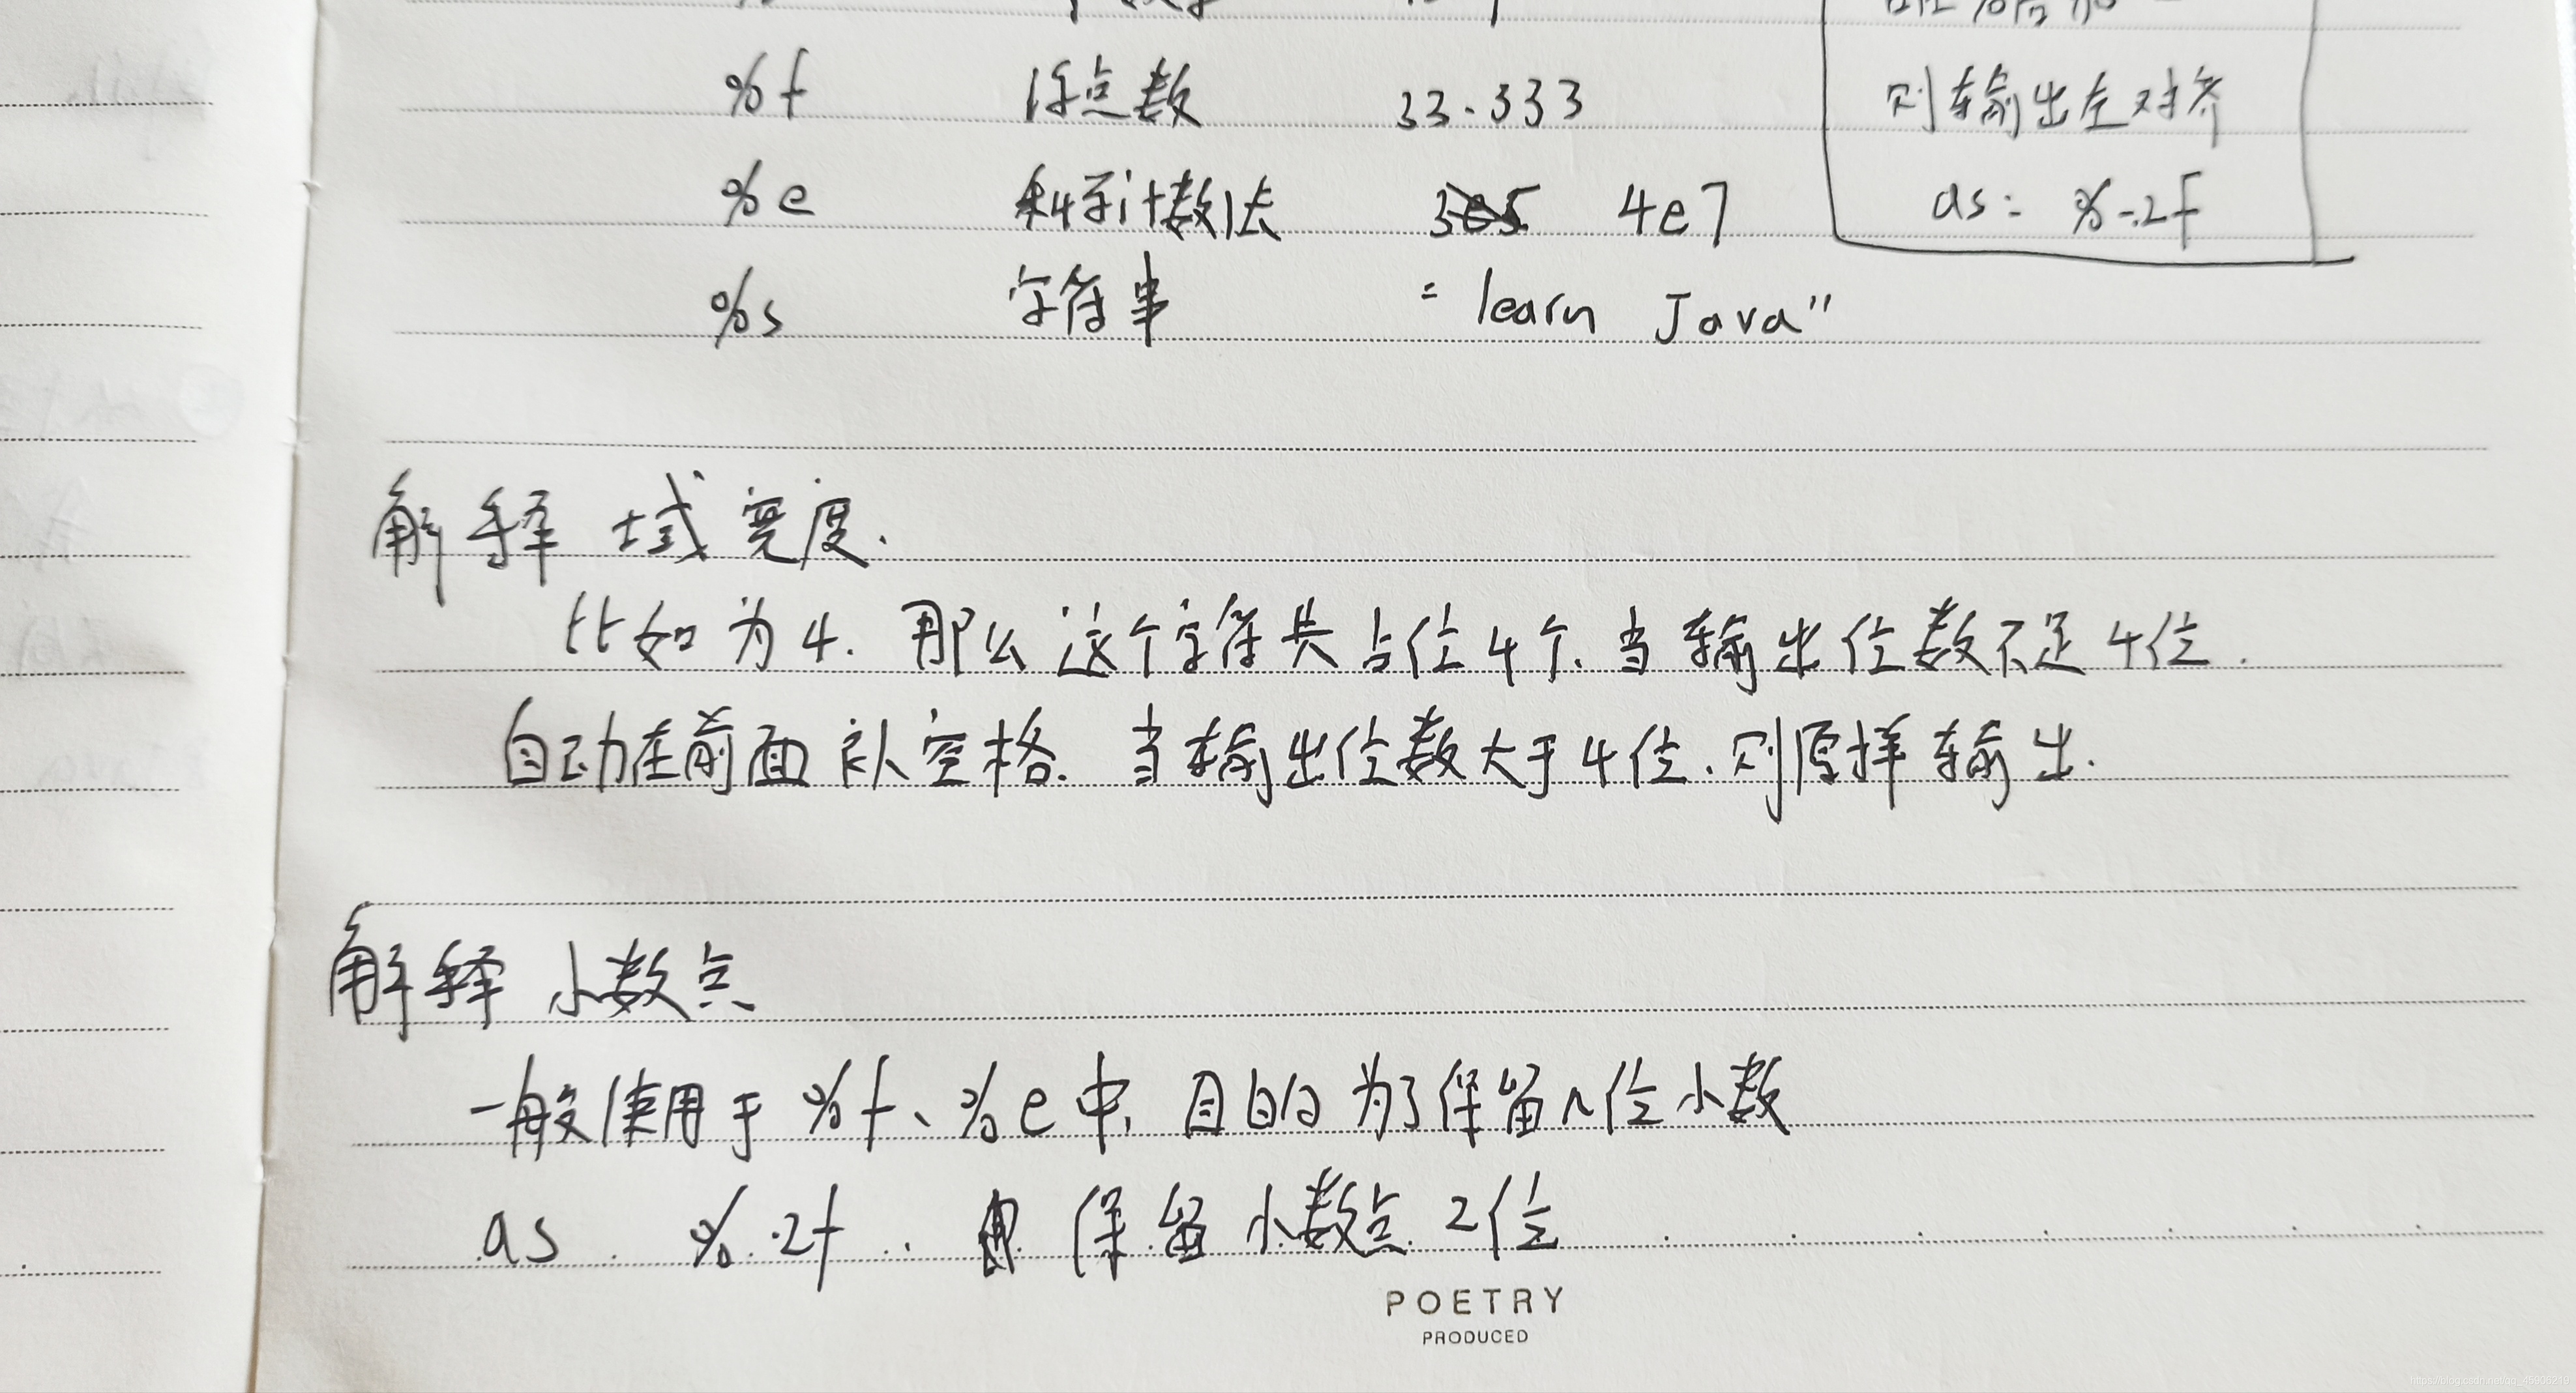 %f 浮点数 33.333
则输出左对齐
%e 科学计数法 4e7
as: %-.2f
%s 字符串 "learn Java"
解释 域宽度.
比如为4. 那么这个字符共占位4个. 当输出位数不足4位.
自动在前面补空格. 当输出位数大于4位. 则原样输出.
解释 小数点
一般使用于%f、%e中, 目的为了保留n位小数
as %.2f. 即 保留小数点2位
POETRY
PRODUCED